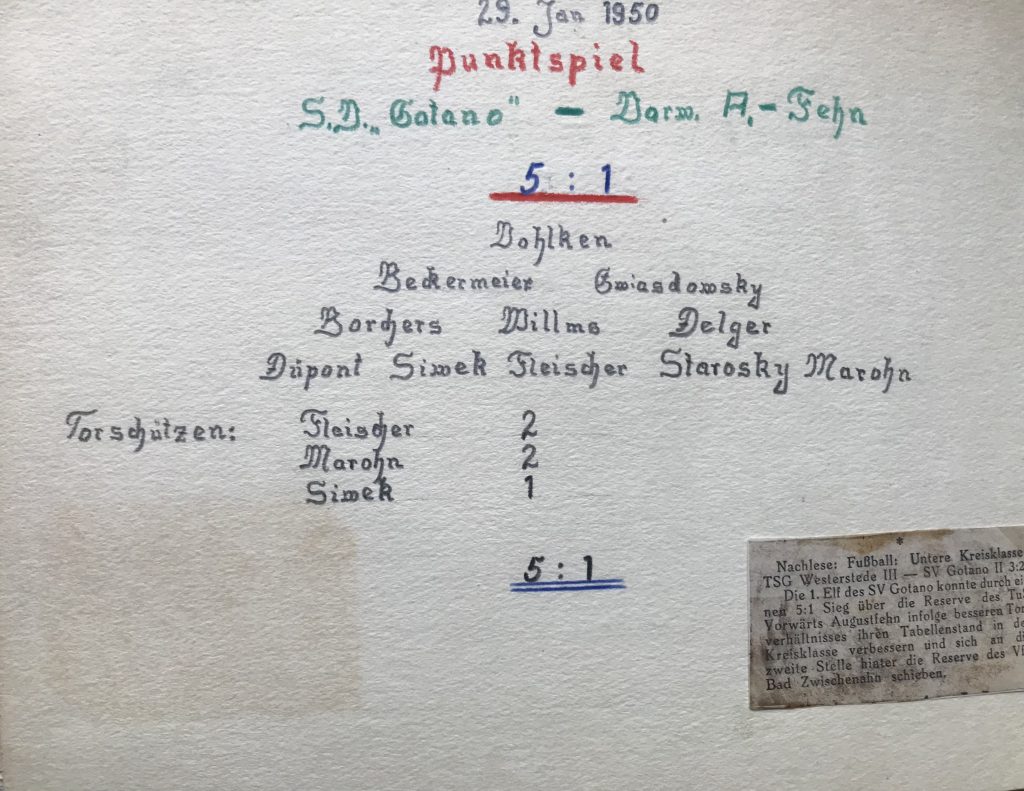 29. Jan 1950
Punktspiel
S.V. „Gotano" — Vorw. A.-Fehn
5 : 1
Vohlken
Beckermeier Gwiasdowsky
Borchers Willms Delger
Düpont Siwek Fleischer Starosky Marohn
Torschützen: Fleischer 2
Marohn 2
Siwek 1
5 : 1
*
Nachlese: Fußball: Untere Kreisklasse
TSG Westerstede III — SV Gotano II 3:2
Die 1. Elf des SV Gotano konnte durch ei
nen 5:1 Sieg über die Reserve des Tu
Vorwärts Augustfehn infolge besseren Tor
verhältnisses ihren Tabellenstand in de
Kreisklasse verbessern und sich an di
zweite Stelle hinter die Reserve des Vf
Bad Zwischenahn schieben.